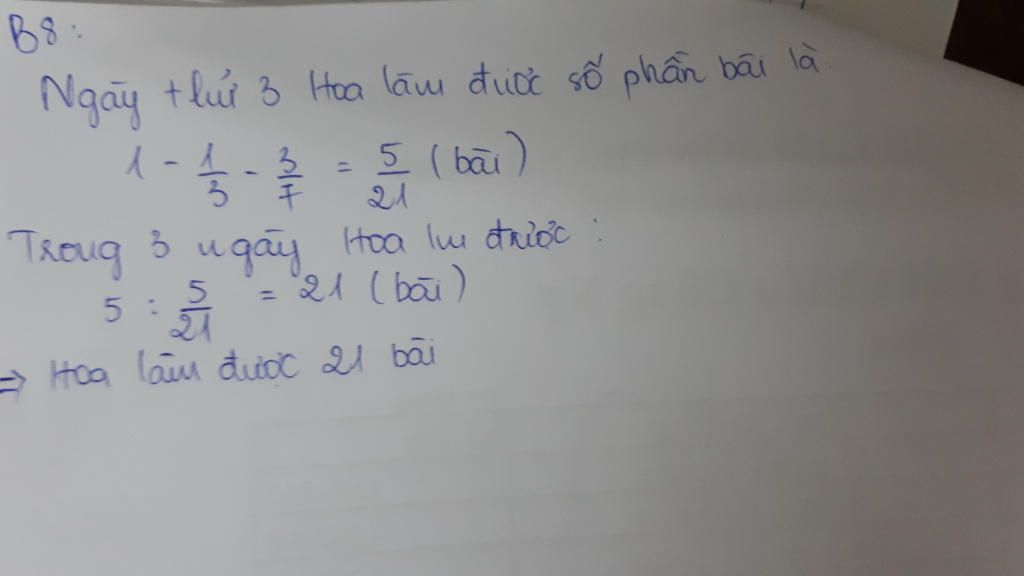 B8:
Ngày thứ 3 Hoa làm được số phần bài là:
1 - 1/3 - 3/7 = 5/21 (bài)
Trong 3 ngày Hoa lm được:
5 : 5/21 = 21 (bài)
=> Hoa làm được 21 bài